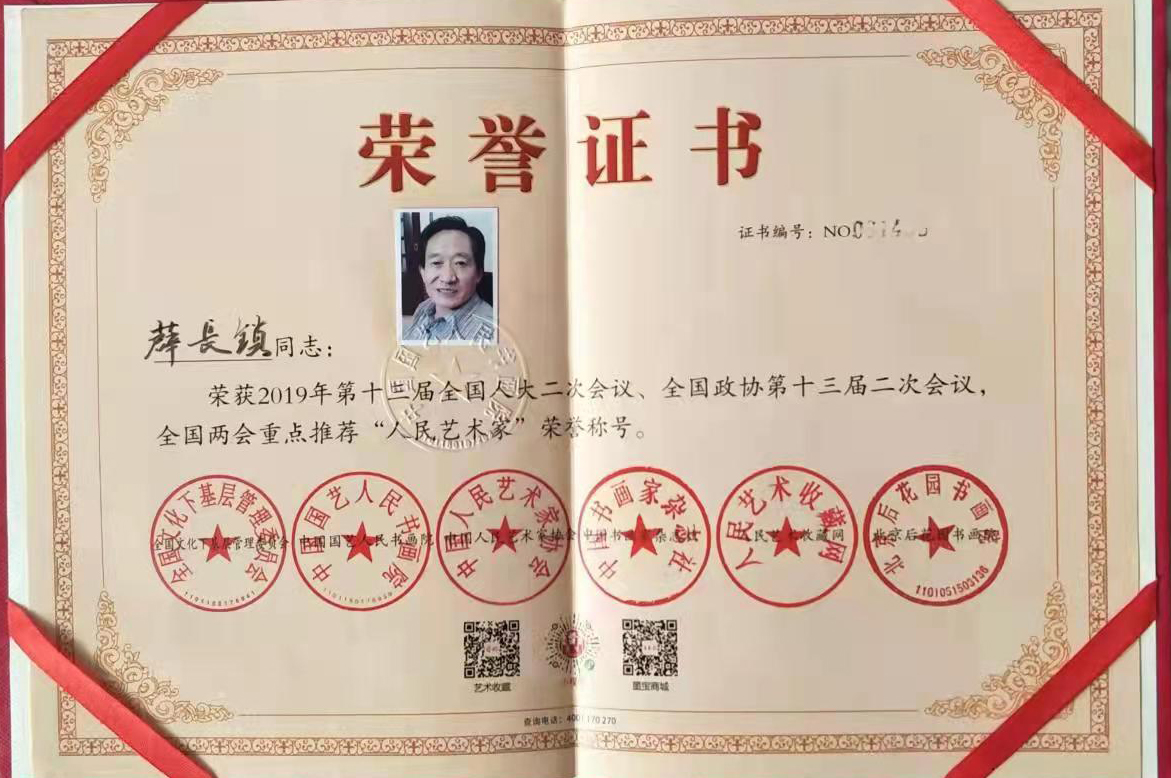 荣誉证书
证书编号：NO.
薛長鎮同志：
荣获2019年第十三届全国人大二次会议、全国政协第十三届二次会议，
全国两会重点推荐“人民艺术家”荣誉称号。
全国文化下基层管理委员会
中国国艺人民书画院
中国人民艺术家协会
中国书画家杂志社
人民艺术收藏网
北京后花园书画院
全国文化下基层管理委员会 中国国艺人民书画院 中国人民艺术家协会 中国书画家杂志社 人民艺术收藏网 北京后花园书画院
1101051503136
艺术收藏
墨宝商城
查询电话：